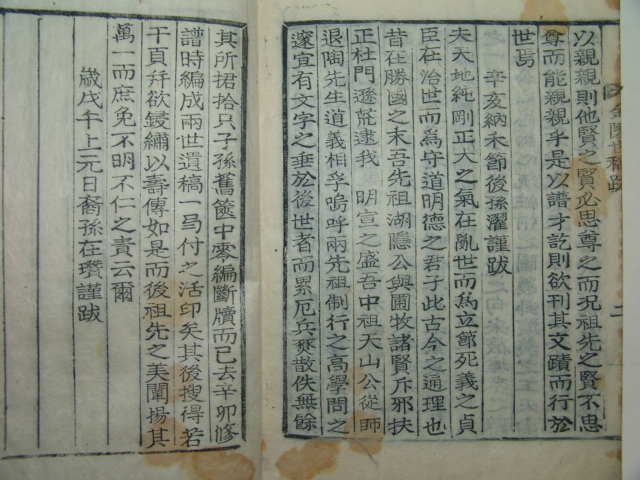 以親親則他賢之賢必思尊之而況祖先之賢不思
尊而能親親乎是以譜才訖則欲刊其文蹟而行於
世焉
辛亥納禾節後孫濯謹跋
夫天地純剛正大之氣在亂世而爲立節死義之貞
臣在治世而爲守道明德之君子此古今之通理也
昔在勝國之末吾先祖湖隱公與圃牧諸賢斥邪扶
正杜門遯荒逮我　明宣之盛吾中祖天山公從師
退陶先生道義相孚嗚呼兩先祖制行之高學問之
邃宜有文字之垂於後世者而累厄兵燹散佚無餘
其所捃拾只子孫舊篋中零編斷牘而已去辛卯修
譜時編成兩世遺稿一局付之活印矣其後搜得若
干頁幷欲鋟繡以壽傳如是而後祖先之美聞揚其
萬一而庶免不明不仁之責云爾
歲戊午上元日裔孫在瓚謹跋
世稿跋
二